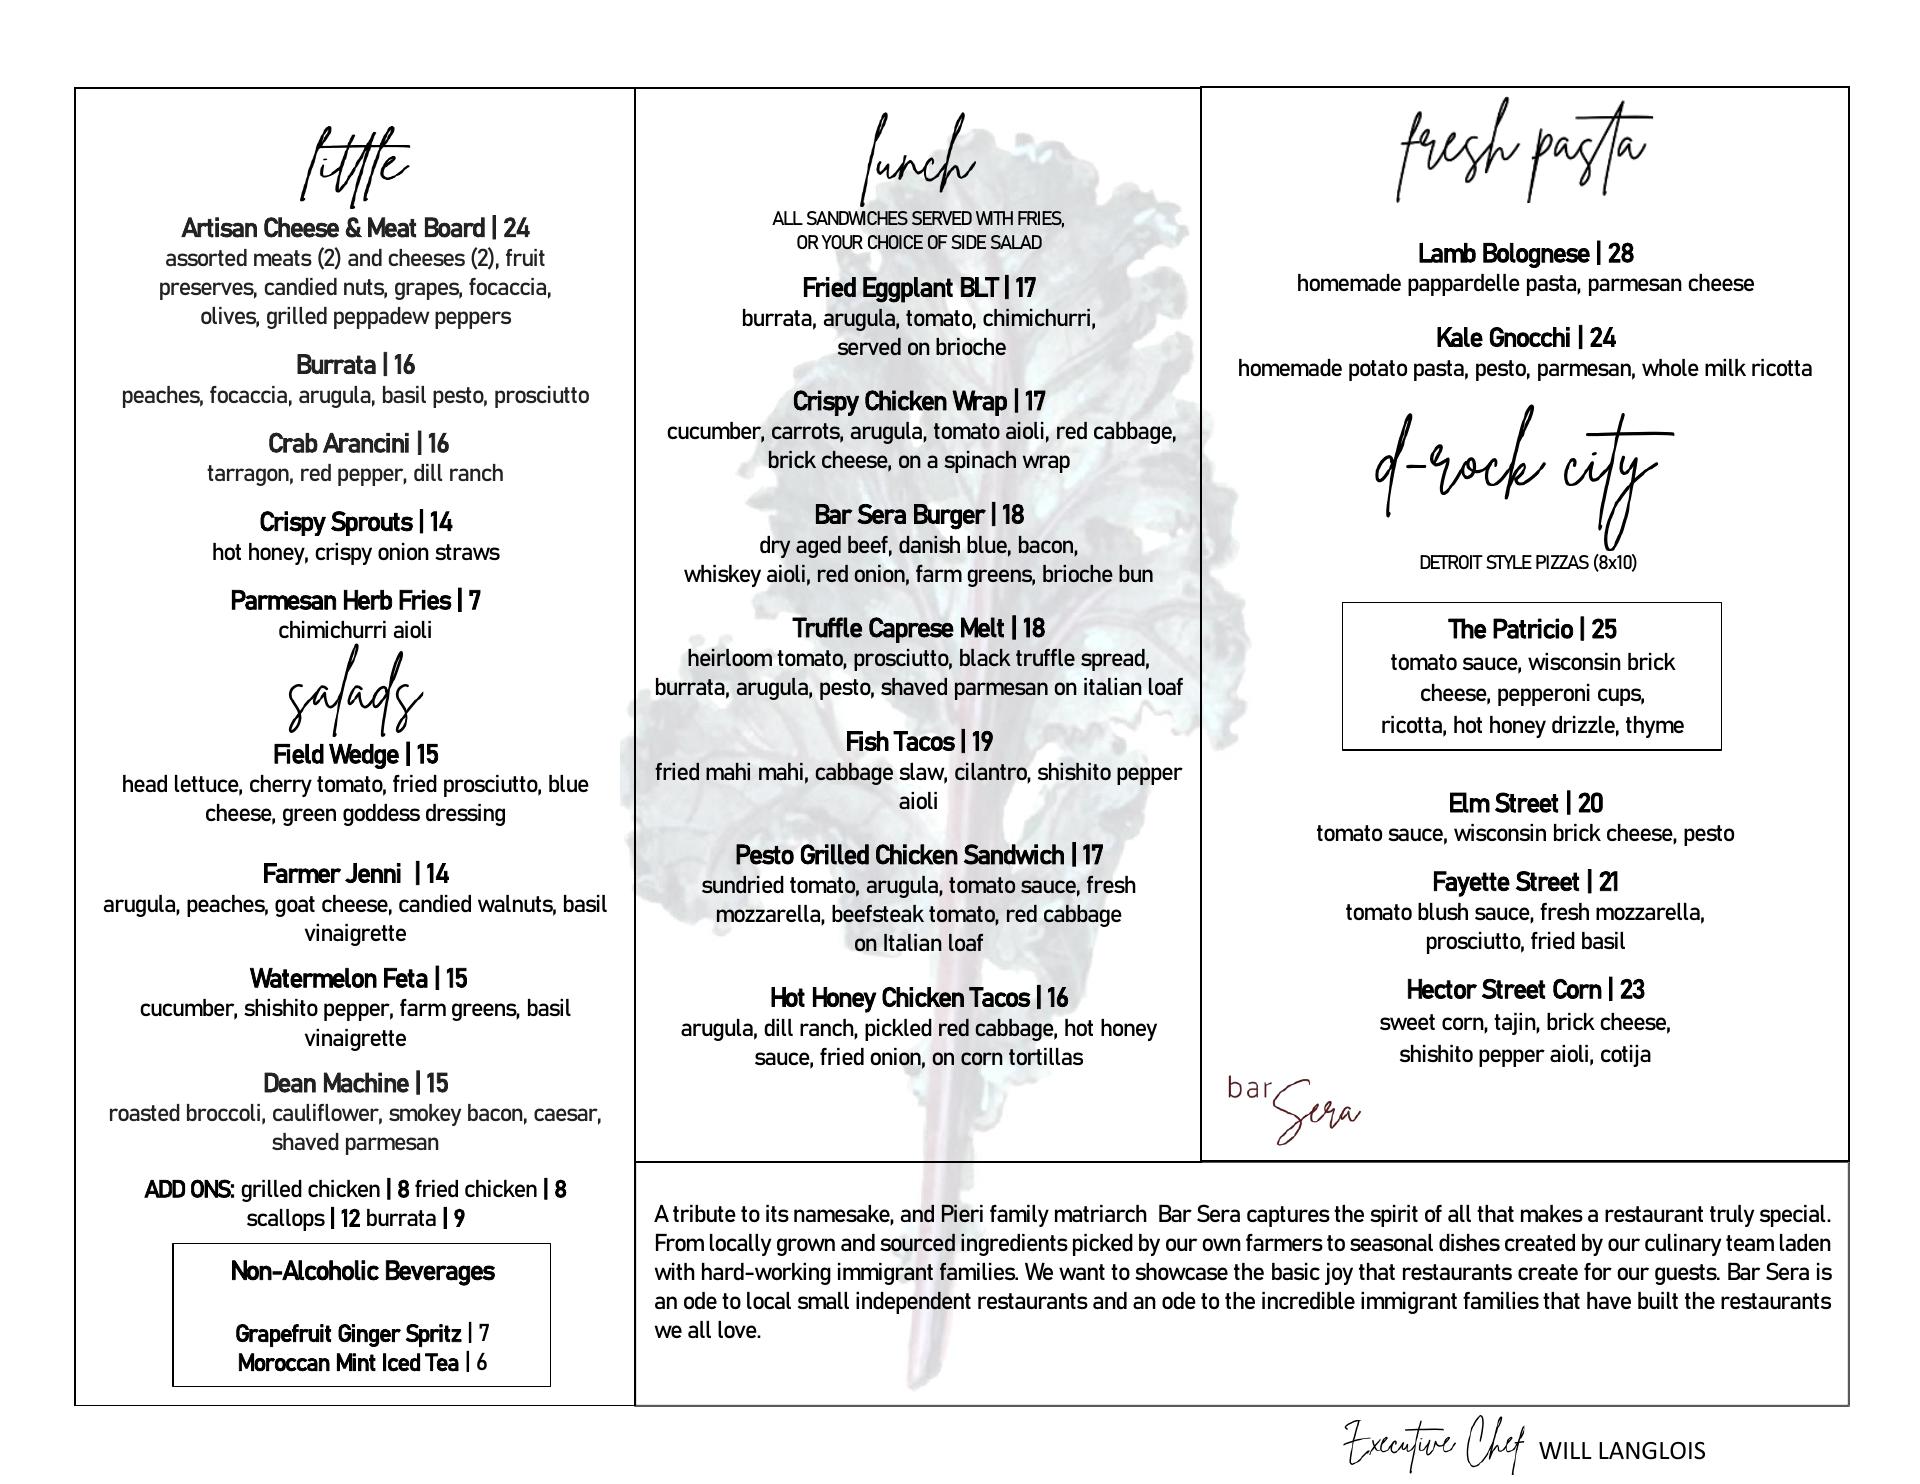 little
Artisan Cheese & Meat Board | 24
assorted meats (2) and cheeses (2), fruit
preserves, candied nuts, grapes, focaccia,
olives, grilled peppadew peppers
Burrata | 16
peaches, focaccia, arugula, basil pesto, prosciutto
Crab Arancini | 16
tarragon, red pepper, dill ranch
Crispy Sprouts | 14
hot honey, crispy onion straws
Parmesan Herb Fries | 7
chimichurri aioli
salads
Field Wedge | 15
head lettuce, cherry tomato, fried prosciutto, blue
cheese, green goddess dressing
Farmer Jenni | 14
arugula, peaches, goat cheese, candied walnuts, basil
vinaigrette
Watermelon Feta | 15
cucumber, shishito pepper, farm greens, basil
vinaigrette
Dean Machine | 15
roasted broccoli, cauliflower, smokey bacon, caesar,
shaved parmesan
ADD ONS: grilled chicken | 8 fried chicken | 8
scallops | 12 burrata | 9
Non-Alcoholic Beverages
Grapefruit Ginger Spritz | 7
Moroccan Mint Iced Tea | 6
lunch
ALL SANDWICHES SERVED WITH FRIES,
OR YOUR CHOICE OF SIDE SALAD
Fried Eggplant BLT | 17
burrata, arugula, tomato, chimichurri,
served on brioche
Crispy Chicken Wrap | 17
cucumber, carrots, arugula, tomato aioli, red cabbage,
brick cheese, on a spinach wrap
Bar Sera Burger | 18
dry aged beef, danish blue, bacon,
whiskey aioli, red onion, farm greens, brioche bun
Truffle Caprese Melt | 18
heirloom tomato, prosciutto, black truffle spread,
burrata, arugula, pesto, shaved parmesan on italian loaf
Fish Tacos | 19
fried mahi mahi, cabbage slaw, cilantro, shishito pepper
aioli
Pesto Grilled Chicken Sandwich | 17
sundried tomato, arugula, tomato sauce, fresh
mozzarella, beefsteak tomato, red cabbage
on Italian loaf
Hot Honey Chicken Tacos | 16
arugula, dill ranch, pickled red cabbage, hot honey
sauce, fried onion, on corn tortillas
fresh pasta
Lamb Bolognese | 28
homemade pappardelle pasta, parmesan cheese
Kale Gnocchi | 24
homemade potato pasta, pesto, parmesan, whole milk ricotta
d-rock city
DETROIT STYLE PIZZAS (8x10)
The Patricio | 25
tomato sauce, wisconsin brick
cheese, pepperoni cups,
ricotta, hot honey drizzle, thyme
Elm Street | 20
tomato sauce, wisconsin brick cheese, pesto
Fayette Street | 21
tomato blush sauce, fresh mozzarella,
prosciutto, fried basil
Hector Street Corn | 23
sweet corn, tajin, brick cheese,
shishito pepper aioli, cotija
bar Sera
A tribute to its namesake, and Pieri family matriarch Bar Sera captures the spirit of all that makes a restaurant truly special.
From locally grown and sourced ingredients picked by our own farmers to seasonal dishes created by our culinary team laden
with hard-working immigrant families. We want to showcase the basic joy that restaurants create for our guests. Bar Sera is
an ode to local small independent restaurants and an ode to the incredible immigrant families that have built the restaurants
we all love.
Executive Chef WILL LANGLOIS